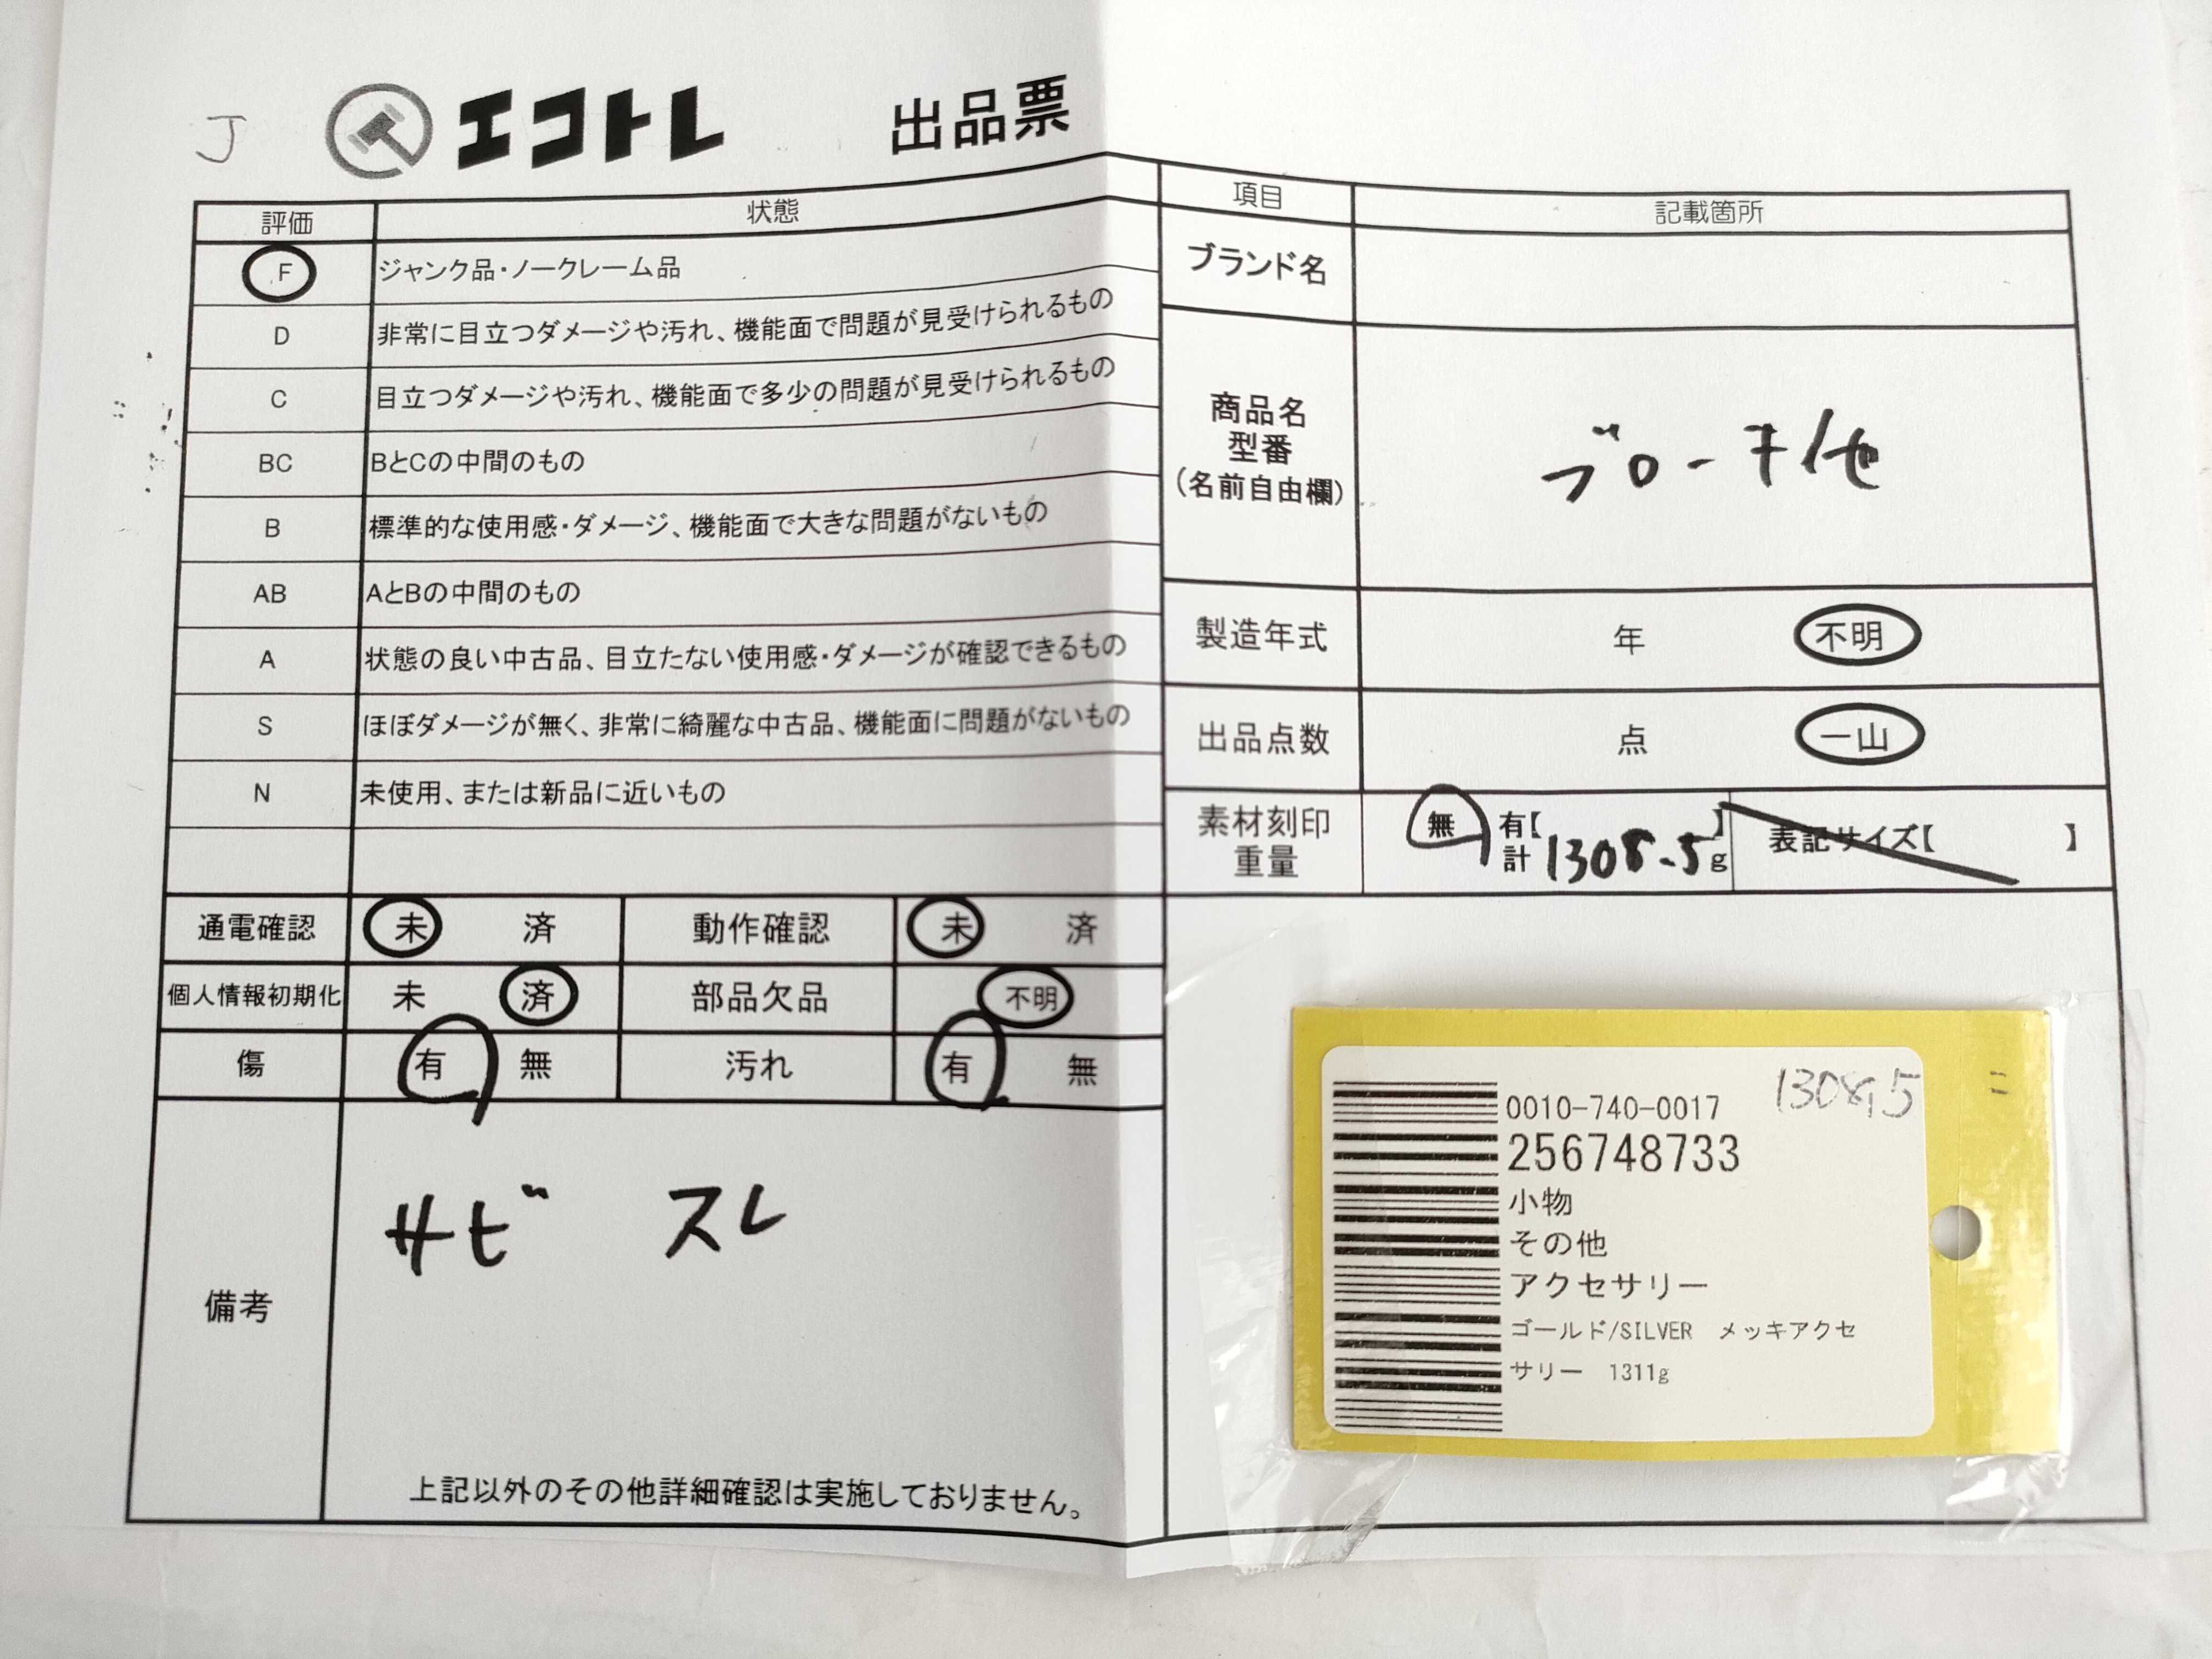 J エコトレ 出品票
評価 状態
F ジャンク品・ノークレーム品
D 非常に目立つダメージや汚れ、機能面で問題が見受けられるもの
C 目立つダメージや汚れ、機能面で多少の問題が見受けられるもの
BC BとCの中間のもの
B 標準的な使用感・ダメージ、機能面で大きな問題がないもの
AB AとBの中間のもの
A 状態の良い中古品、目立たない使用感・ダメージが確認できるもの
S ほぼダメージが無く、非常に綺麗な中古品、機能面に問題がないもの
N 未使用、または新品に近いもの
通電確認 未 済 動作確認 未 済
個人情報初期化 未 済 部品欠品 不明
傷 有 無 汚れ 有 無
備考
サビ スレ
上記以外のその他詳細確認は実施しておりません。
項目 記載箇所
ブランド名
商品名
型番
(名前自由欄)
ブローチ他
製造年式 年 不明
出品点数 点 一山
素材刻印
重量
無 有【 】
計 1308.5g
表記サイズ【 】
0010-740-0017 1308.5
256748733
小物
その他
アクセサリー
ゴールド/SILVER メッキアクセ
サリー 1311g